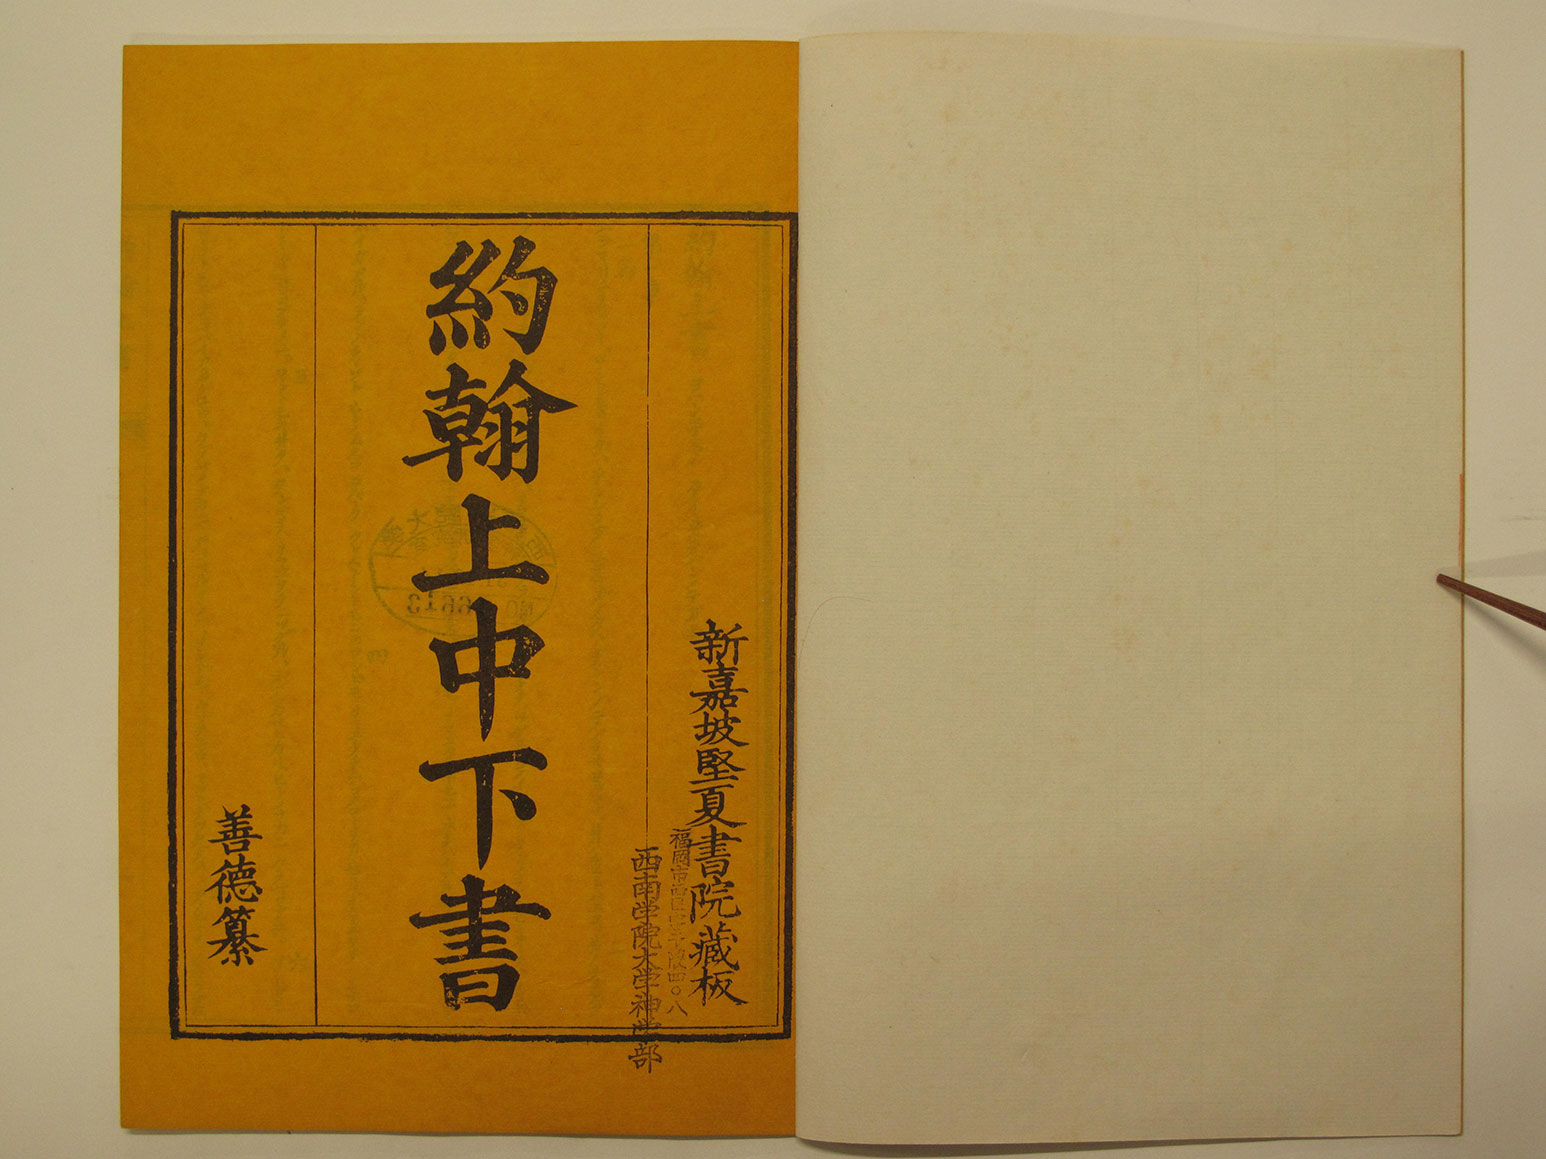 新嘉坡堅夏書院藏板
福岡市西区
西南学院大学神学部
約翰上中下書
善德纂